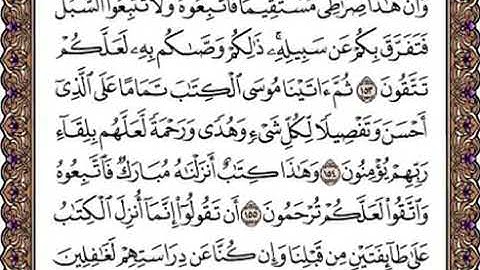 وَأَنَّ هَـٰذَا صِرَٰطِى مُسْتَقِيمًا فَٱتَّبِعُوهُ وَلَا تَتَّبِعُوا۟ ٱلسُّبُلَ
فَتَفَرَّقَ بِكُمْ عَن سَبِيلِهِۦ ۚ ذَٰلِكُمْ وَصَّىٰكُم بِهِۦ لَعَلَّكُمْ
تَتَّقُونَ ١٥٣ ثُمَّ ءَاتَيْنَا مُوسَى ٱلْكِتَـٰبَ تَمَامًا عَلَى ٱلَّذِىٓ
أَحْسَنَ وَتَفْصِيلًا لِّكُلِّ شَىْءٍ وَهُدًى وَرَحْمَةً لَّعَلَّهُم بِلِقَآءِ
رَبِّهِمْ يُؤْمِنُونَ ١٥٤ وَهَـٰذَا كِتَـٰبٌ أَنزَلْنَـٰهُ مُبَارَكٌ فَٱتَّبِعُوهُ
وَٱتَّقُوا۟ لَعَلَّكُمْ تُرْحَمُونَ ١٥٥ أَن تَقُولُوٓا۟ إِنَّمَآ أُنزِلَ ٱلْكِتَـٰبُ
عَلَىٰ طَآئِفَتَيْنِ مِن قَبْلِنَا وَإِن كُنَّا عَن دِرَاسَتِهِمْ لَغَـٰفِلِينَ